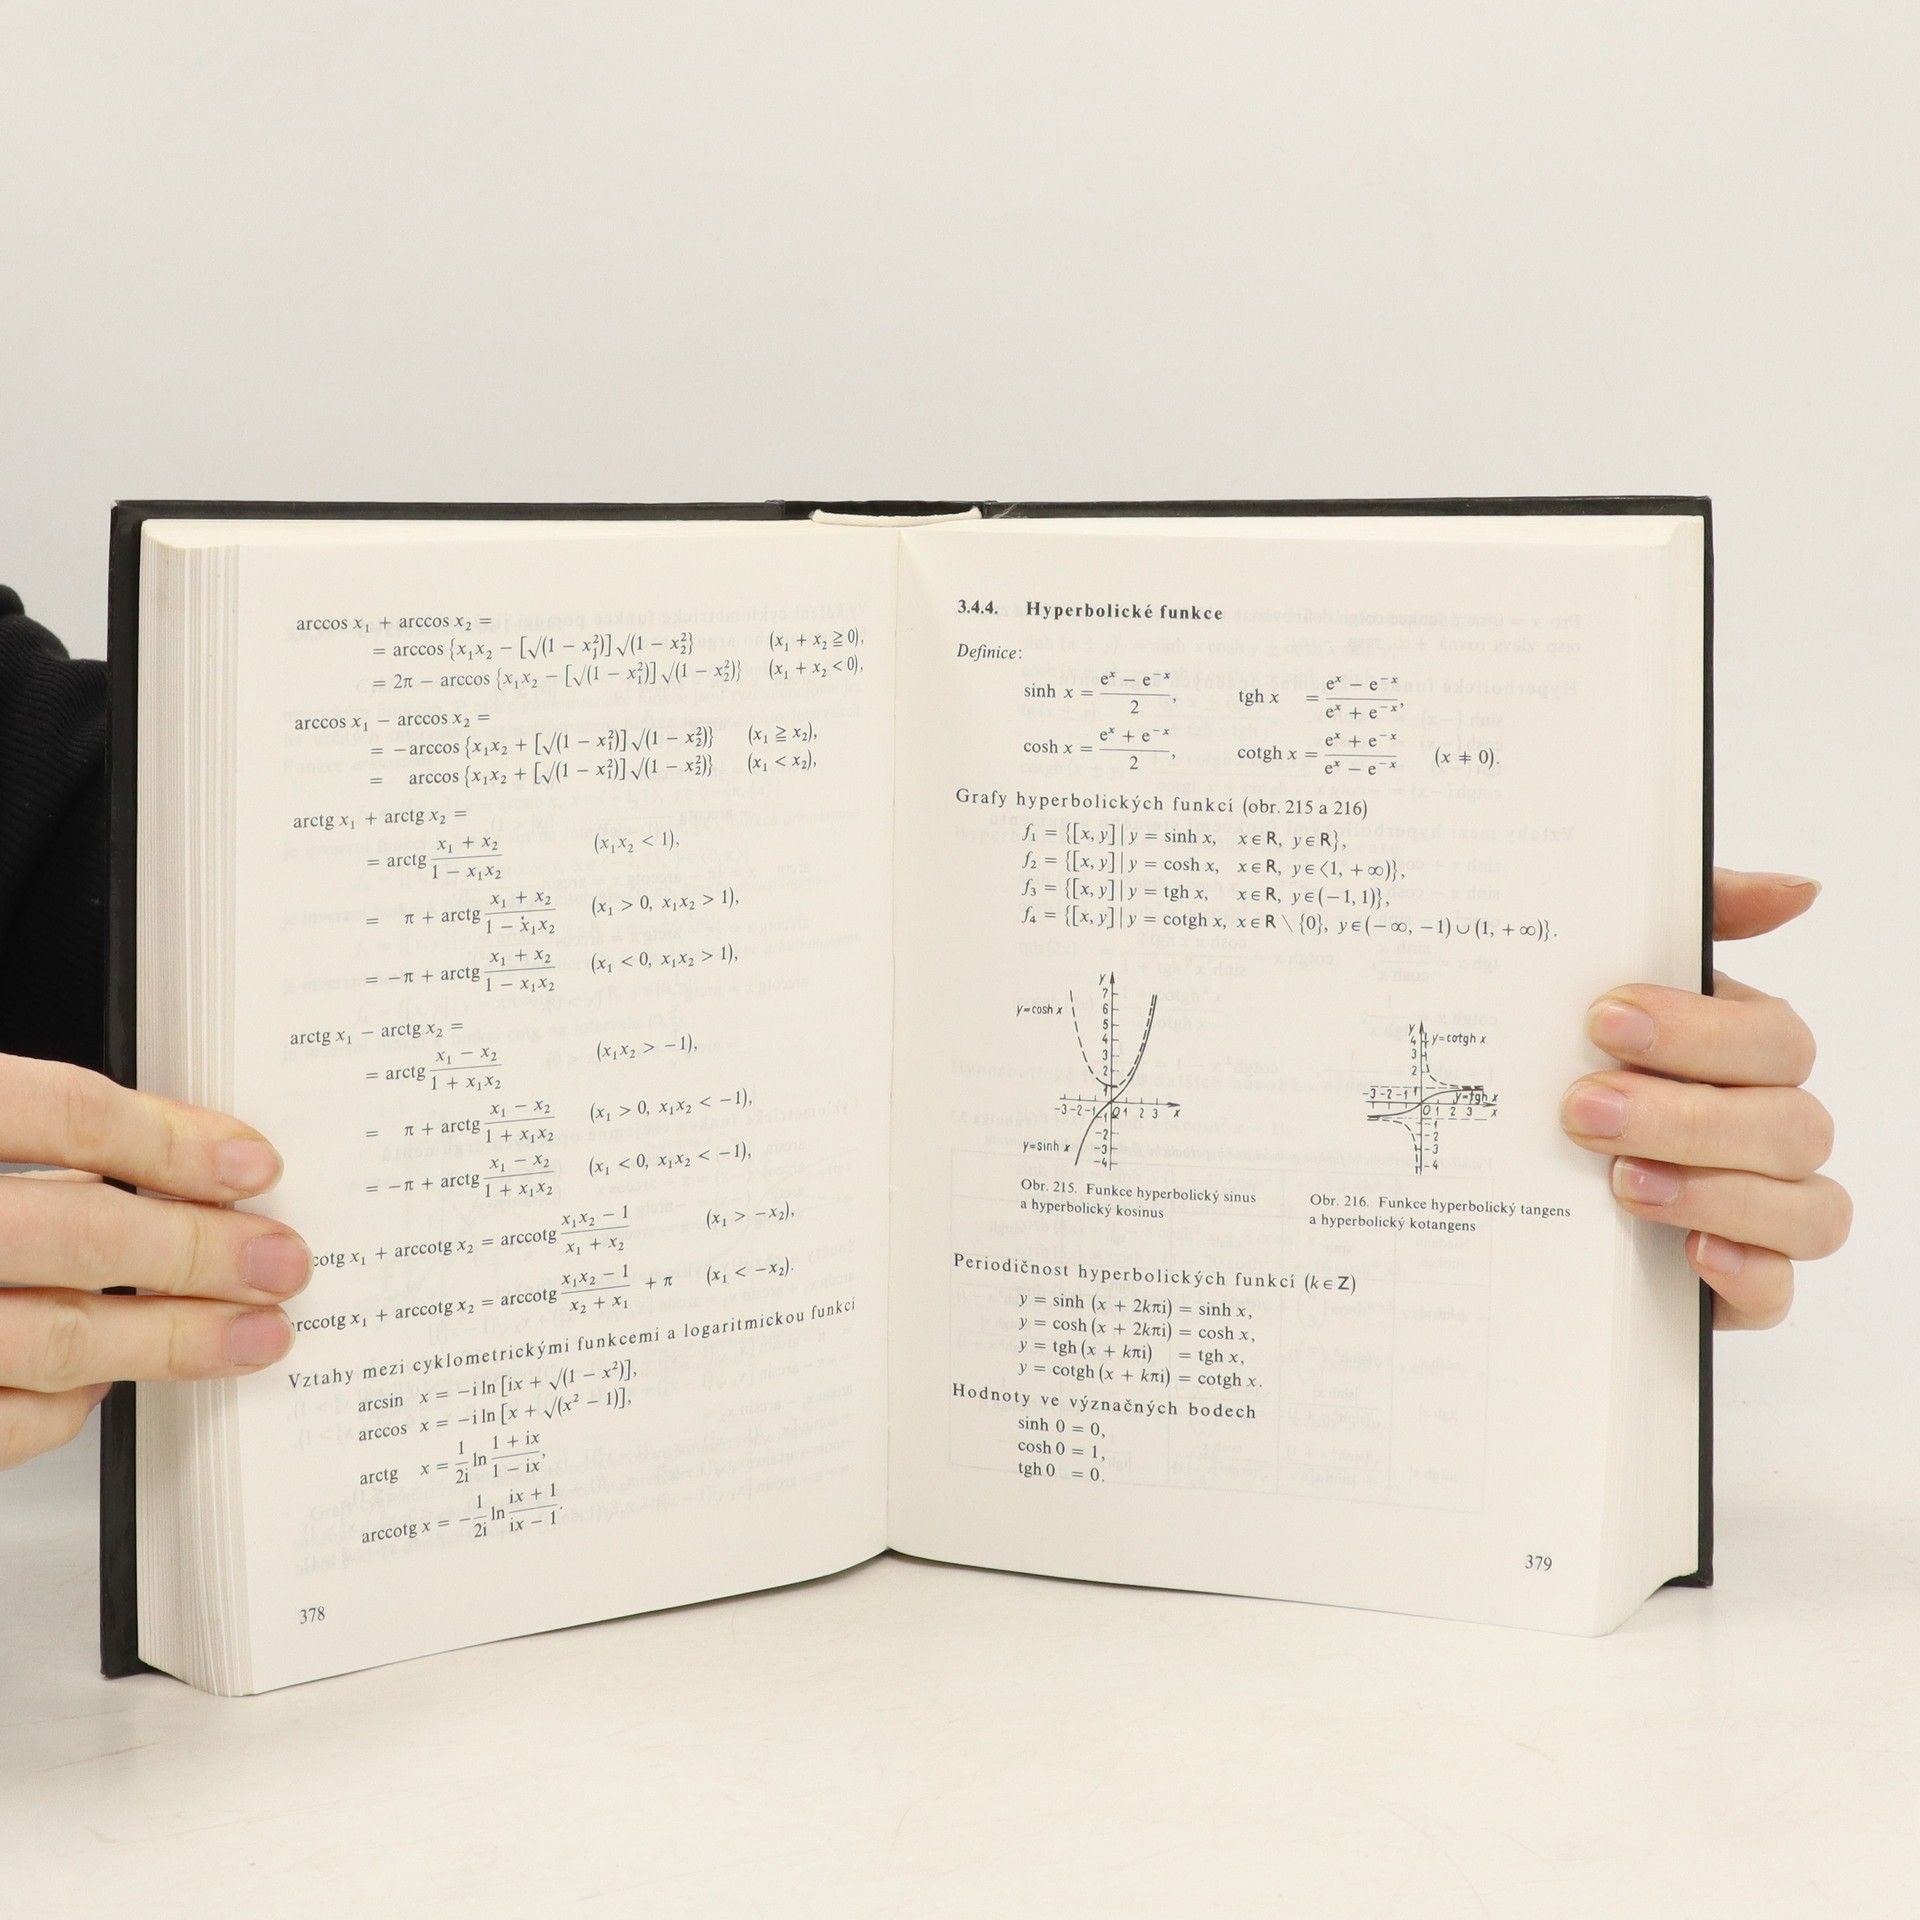 arccos x₁ + arccos x₂ =
= arccos {x₁x₂ − [√(1 − x₁²)] √(1 − x₂²)} (x₁ + x₂ ≧ 0),
= 2π − arccos {x₁x₂ − [√(1 − x₁²)] √(1 − x₂²)} (x₁ + x₂ < 0),
arccos x₁ − arccos x₂ =
= −arccos {x₁x₂ + [√(1 − x₁²)] √(1 − x₂²)} (x₁ ≧ x₂),
= arccos {x₁x₂ + [√(1 − x₁²)] √(1 − x₂²)} (x₁ < x₂),
arctg x₁ + arctg x₂ =
= arctg (x₁ + x₂)/(1 − x₁x₂) (x₁x₂ < 1),
= π + arctg (x₁ + x₂)/(1 − x₁x₂) (x₁ > 0, x₁x₂ > 1),
= −π + arctg (x₁ + x₂)/(1 − x₁x₂) (x₁ < 0, x₁x₂ > 1),
arctg x₁ − arctg x₂ =
= arctg (x₁ − x₂)/(1 + x₁x₂) (x₁x₂ > −1),
= π + arctg (x₁ − x₂)/(1 + x₁x₂) (x₁ > 0, x₁x₂ < −1),
= −π + arctg (x₁ − x₂)/(1 + x₁x₂) (x₁ < 0, x₁x₂ < −1),
cotg x₁ + arccotg x₂ = arccotg (x₁x₂ − 1)/(x₁ + x₂) (x₁ > −x₂),
rccotg x₁ + arccotg x₂ = arccotg (x₁x₂ − 1)/(x₂ + x₁) + π (x₁ < −x₂).
Vztahy mezi cyklometrickými funkcemi a logaritmickou funkcí
arcsin x = −i ln [ix + √(1 − x²)],
arccos x = −i ln [x + √(x² − 1)],
arctg x = 1/2i ln (1 + ix)/(1 − ix),
arccotg x = −1/2i ln (ix + 1)/(ix − 1).
378
3.4.4. Hyperbolické funkce
Definice:
sinh x = (eˣ − e⁻ˣ)/2, tgh x = (eˣ − e⁻ˣ)/(eˣ + e⁻ˣ),
cosh x = (eˣ + e⁻ˣ)/2, cotgh x = (eˣ + e⁻ˣ)/(eˣ − e⁻ˣ) (x ≠ 0).
Grafy hyperbolických funkcí (obr. 215 a 216)
f₁ = {[x, y] | y = sinh x, x ∈ R, y ∈ R},
f₂ = {[x, y] | y = cosh x, x ∈ R, y ∈ ⟨1, +∞)},
f₃ = {[x, y] | y = tgh x, x ∈ R, y ∈ (−1, 1)},
f₄ = {[x, y] | y = cotgh x, x ∈ R \ {0}, y ∈ (−∞, −1) ∪ (1, +∞)}.
y
7
y=cosh x 6
5
4
3
2
1
−3 −2 −1 0 1 2 3 x
−1
−2
y=sinh x −3
−4
Obr. 215. Funkce hyperbolický sinus
a hyperbolický kosinus
y
4 y=cotgh x
3
2
−3 −2 −1 1 y=tgh x
0 1 2 3 x
−1
−2
−3
−4
Obr. 216. Funkce hyperbolický tangens
a hyperbolický kotangens
Periodičnost hyperbolických funkcí (k ∈ Z)
y = sinh (x + 2kπi) = sinh x,
y = cosh (x + 2kπi) = cosh x,
y = tgh (x + kπi) = tgh x,
y = cotgh (x + kπi) = cotgh x.
Hodnoty ve význačných bodech
sinh 0 = 0,
cosh 0 = 1,
tgh 0 = 0.
379